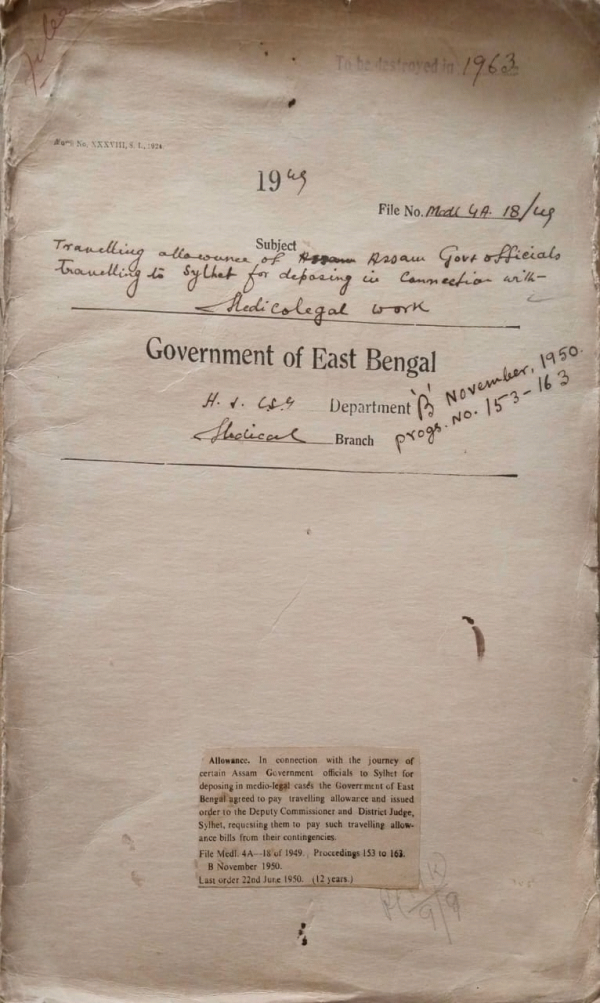 Filed
To be destroyed in 1963
No. XXXVIII, S. I., 1924.
1949
File No. Medl 4A. 18/49
Subject
Travelling allowance of Assam Assam Govt officials
travelling to Sylhet for deposing in connection with
Medicolegal work
Government of East Bengal
H. & LSG Department
Medical Branch
'B' November, 1950.
progs. No. 153-163
Allowance. In connection with the journey of
certain Assam Government officials to Sylhet for
deposing in medio-legal cases the Government of East
Bengal agreed to pay travelling allowance and issued
order to the Deputy Commissioner and District Judge,
Sylhet, requesting them to pay such travelling allow-
ance bills from their contingencies.
File Medl. 4A—18 of 1949. Proceedings 153 to 163.
B November 1950.
Last order 22nd June 1950. (12 years.)